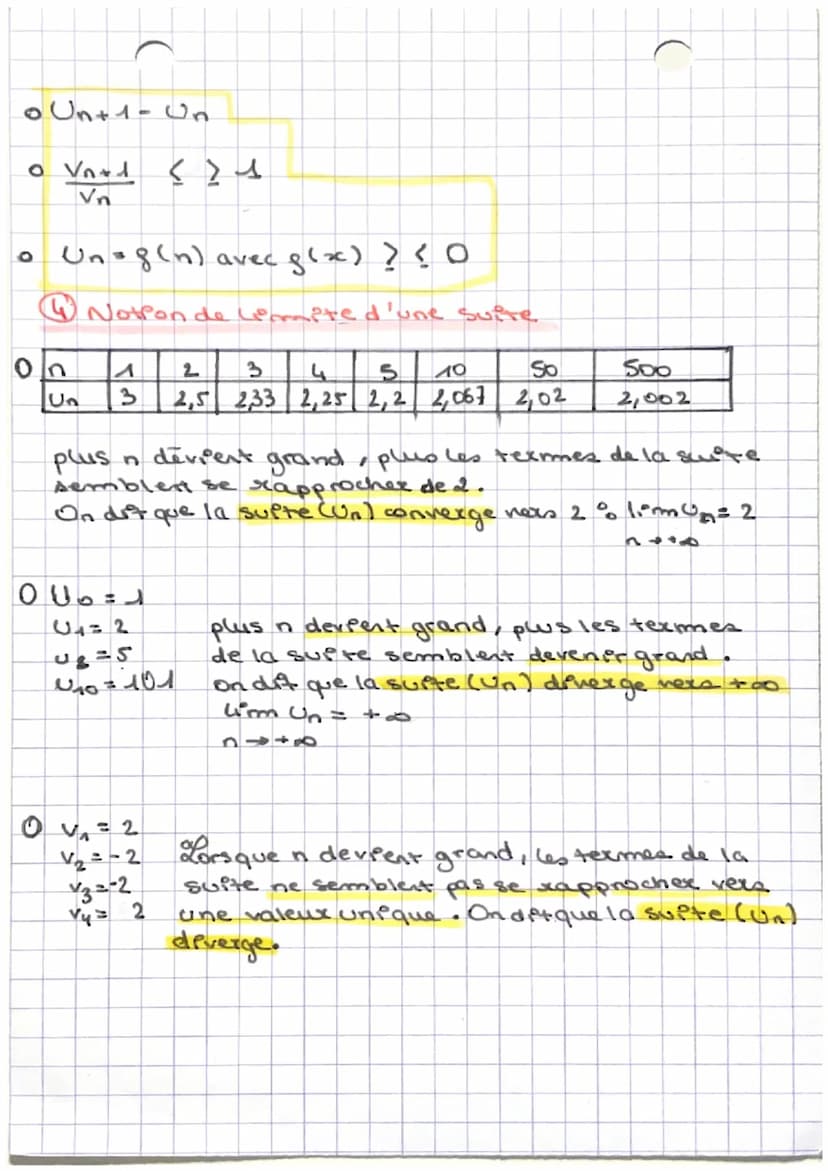 o Un+1 - Un
o Vn+1 / Vn ≤ ≥ 1
o Un = g(n) avec g(x) ≥ ≤ 0
④ Notion de limite d'une suite
O n 1 2 3 4 5 10 50 500
Un 3 2,5 2,33 2,25 2,2 2,067 2,02 2,002
plus n devient grand, plus les termes de la suite
semblent se rapprocher de 2.
On dit que la suite (Un) converge vers 2 : lim Un = 2
n→+∞
O U0 = 1
U1 = 2 plus n devient grand, plus les termes
U2 = 5 de la suite semblent devenir grand.
U10 = 101 on dit que la suite (Un) diverge vers +∞
lim Un = +∞
n→+∞
O V1 = 2
V2 = -2 Lorsque n devient grand, les termes de la
V3 = -2 suite ne semblent pas se rapprocher vers
V4 = 2 une valeur unique. On dit que la suite (Un)
diverge.